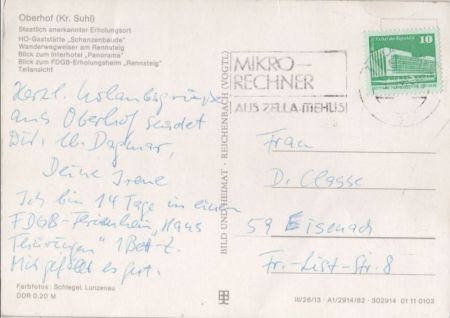 Oberhof (Kr. Suhl)
Staatlich anerkannter Erholungsort
HO-Gaststätte „Schanzenbaude"
Wanderwegweiser am Rennsteig
Blick zum Interhotel „Panorama"
Blick zum FDGB-Erholungsheim „Rennsteig"
Teilansicht
Herzl. Urlaubsgrüße
aus Oberhof sendet
Dir, lb. Dagmar,
Deine Irene
Ich bin 14 Tage in einem
FDGB-Ferienheim „Haus
Thüringen" 1 Bett-Z.
Mir gefällt es gut.
Farbfotos: Schlegel, Lunzenau
DDR 0,20 M
BILD UND HEIMAT · REICHENBACH (VOGTL)
MIKRO-
RECHNER
AUS ZELLA-MEHLIS!
10
Frau
D. Classe
59 Eisenach
Fr.-List-Str. 8
III/26/13 · A1/2914/82 · 302914 01 11 0103